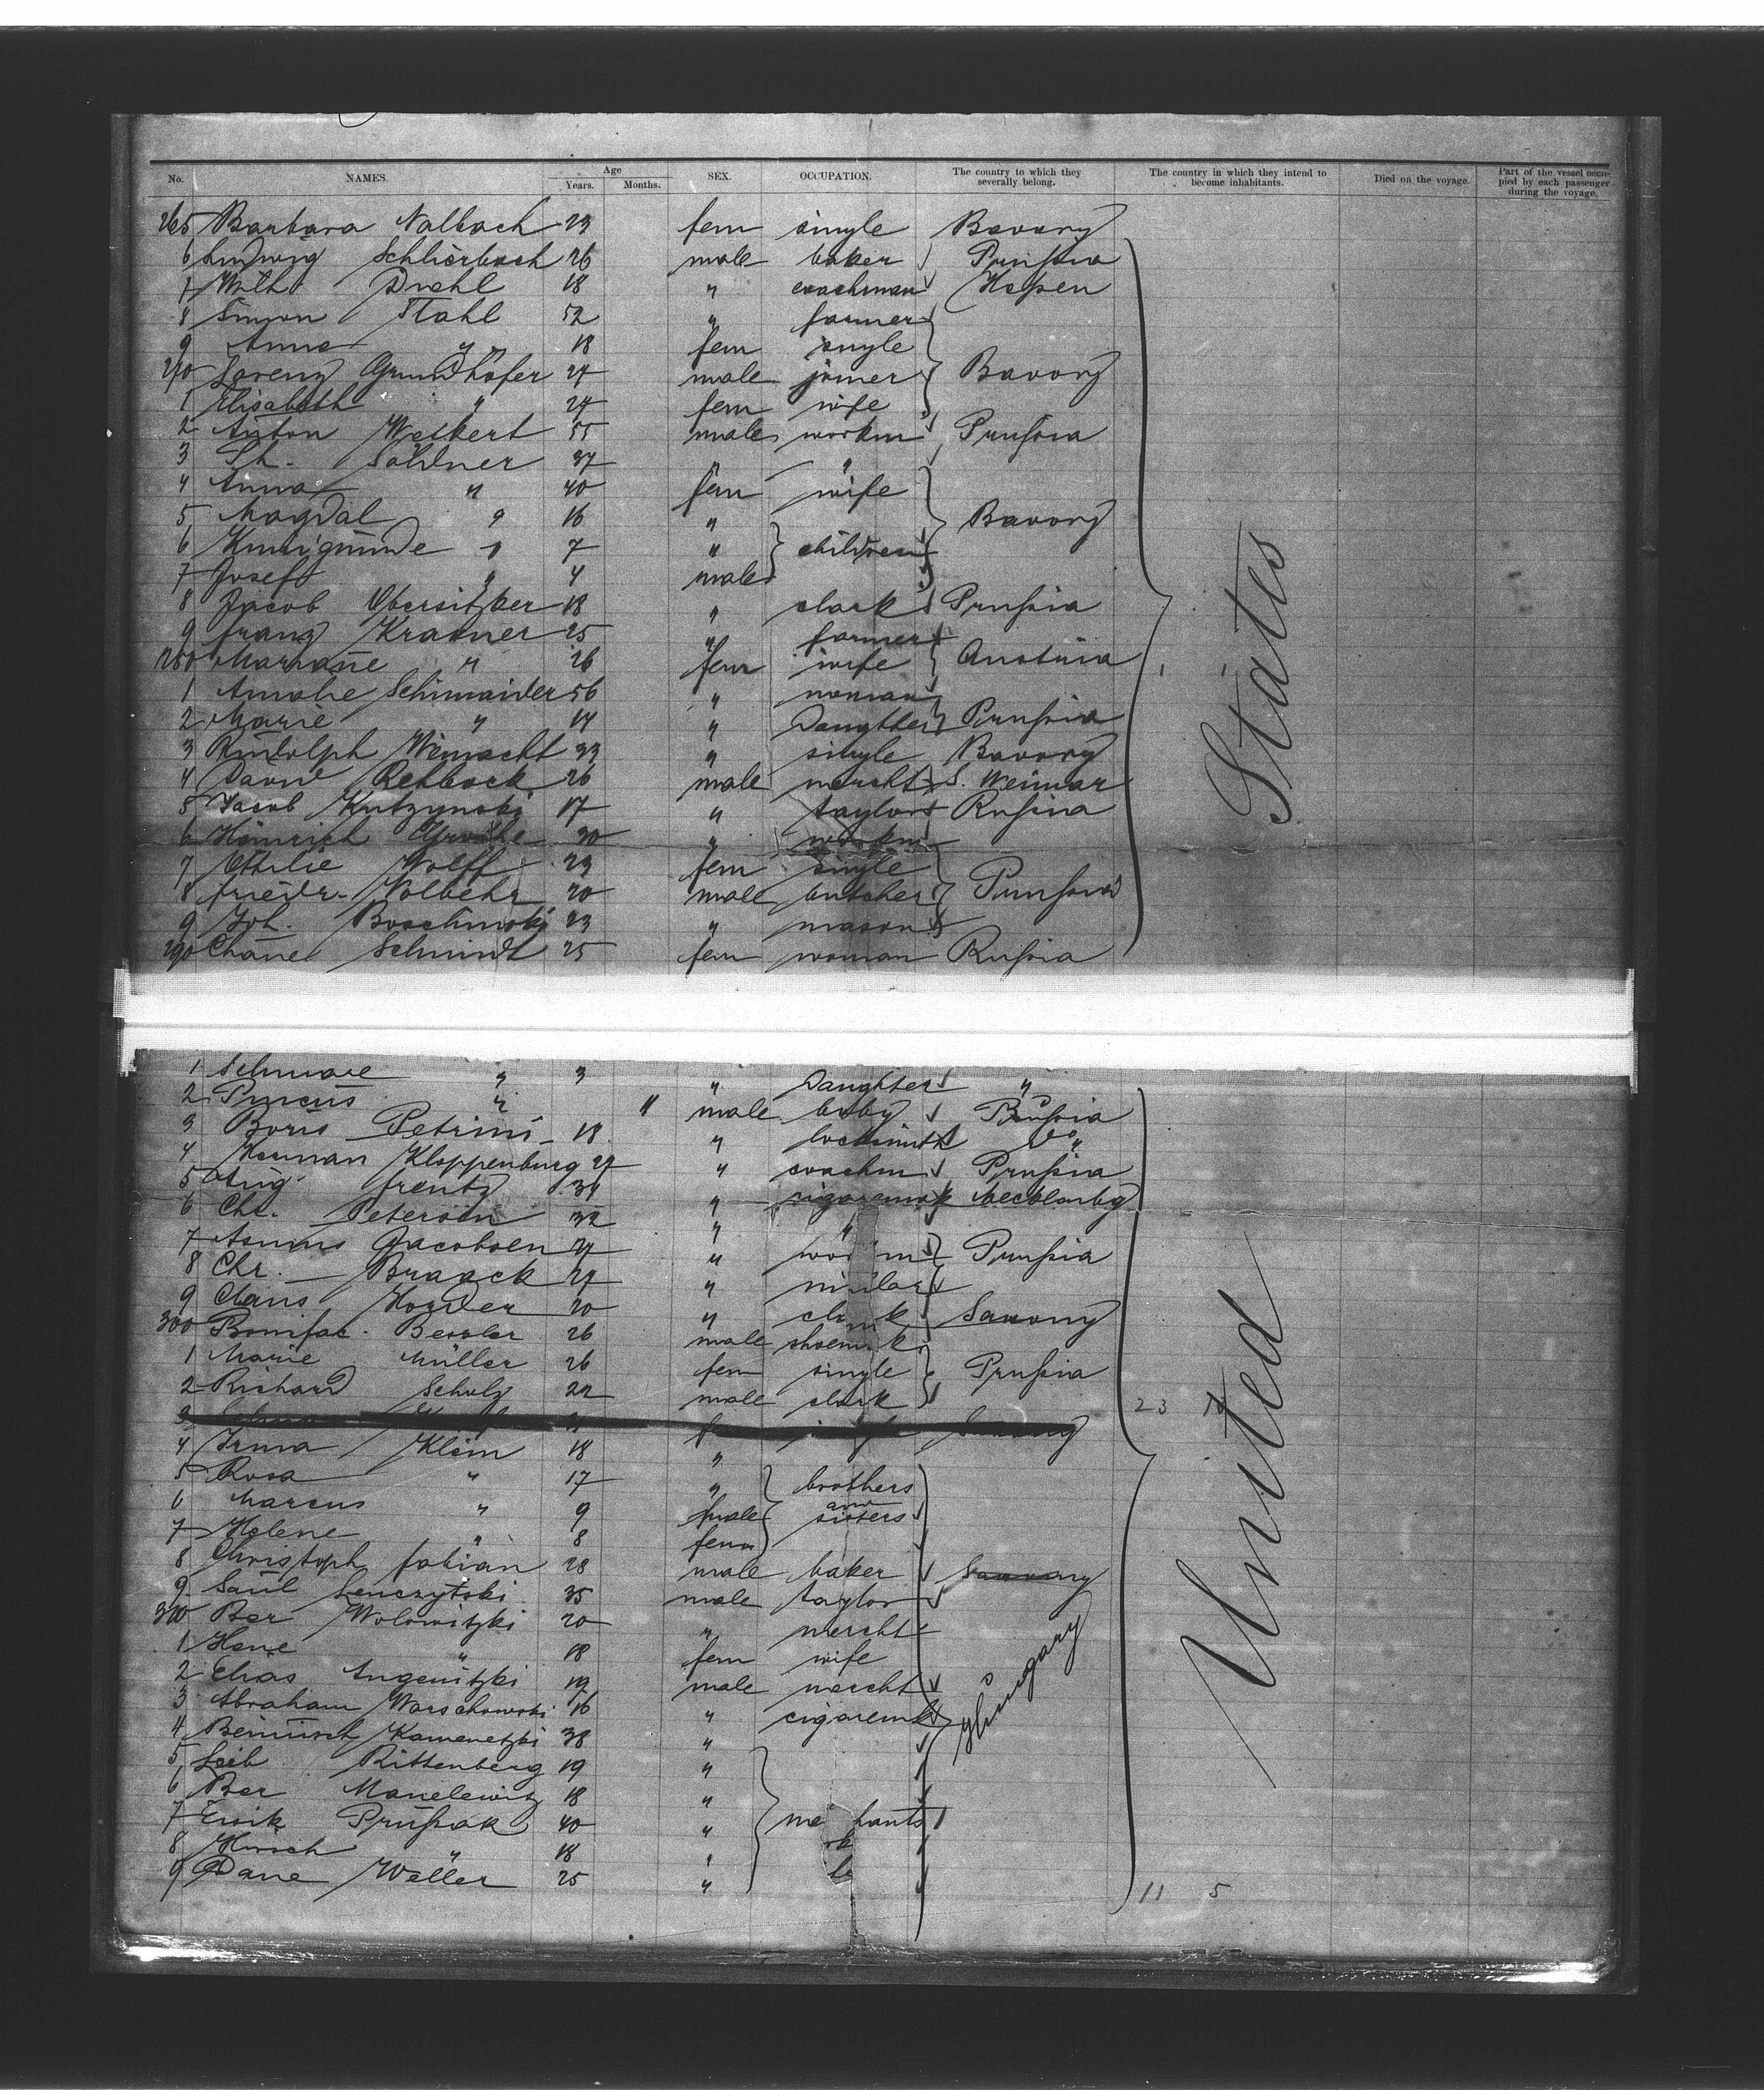 No. NAMES. Age Years. Months. SEX. OCCUPATION. The country to which they severally belong. The country in which they intend to become inhabitants. Died on the voyage. Part of the vessel occupied by each passenger during the voyage.
265 Barbara Nalbach 23 fem single Bavary
6 Ludwig Schlierbach 26 male baker Prußia
7 Wilh. Diehl 18 " coachman Heßen
8 Simon Stahl 52 " farmer
9 Anna " 18 fem single
270 Lorenz Grundhöfer 27 male joiner Bavary
1 Elisabeth " 24 fem wife
2 Anton Weikert 55 male workm Prußia
3 Söldner 37 " "
4 Anna " 40 fem wife
5 Magdal " 16 " Bavary
6 Kunigunde " 7 " children
7 Josef " 4 male
8 Jacob Obersitzker 18 " clark Prußia
9 Franz Krasner 25 " farmer
280 Mariane " 26 fem wife Austria
1 Amalie Schinnaider 56 " woman
2 Marie " 14 " Daughter Prußia
3 Rudolph Weinacht 33 " single Bavary
4 David Rehbock 26 male mercht S. Weimar
5 Jacob Kutzynski 17 " taylor Rußia
6 Heinrich 30 " workm
7 Ottilie Wolff 23 fem single
8 Friedr. Volbehr 20 male butcher Prußia
9 Joh. 23 " mason
290 Chane Schmidt 25 fem woman Rußia
1 " 3 " Daughter "
2 " 11 male baby Rußia
3 Boris Petrini 18 " locksmith Do "
4 Herman Kloppenburg 27 " coachm Prußia
5 Aug. Frentz 34 " cigaremak Mecklenbg
6 Chr. Petersen 32 " "
7 Asmus Jacobsen 24 " wo m Prußia
8 Chr. Braack 27 "
9 Claus 20 " Saxony
300 Bonifac. Bessler 26 male shoem k
1 Marie Müller 26 fem single Prußia
2 Richard Schulz 22 male clark 23
3
4 Irma Klein 18 "
5 Rosa " 17 " brothers
6 Marcus " 9 male and sisters
7 Helene " 8 fem
8 Christoph Fabian 28 male baker Saxony
9 Saul Senczytski 35 male taylor
310 Ber Wolowitzki 20 " mercht
1 Hene " 18 fem wife
2 Elias Augenitzki 19 male mercht
3 Abraham Warschawski 16 " cigaremk Hungary
4 Kamenetzki 38 "
5 Leib Rittenberg 19 "
6 Ber Manelewitz 18 "
7 Prußak 40 " me hants
8 Hirsch " 18 "
9 Weller 25 " 11 5
United States